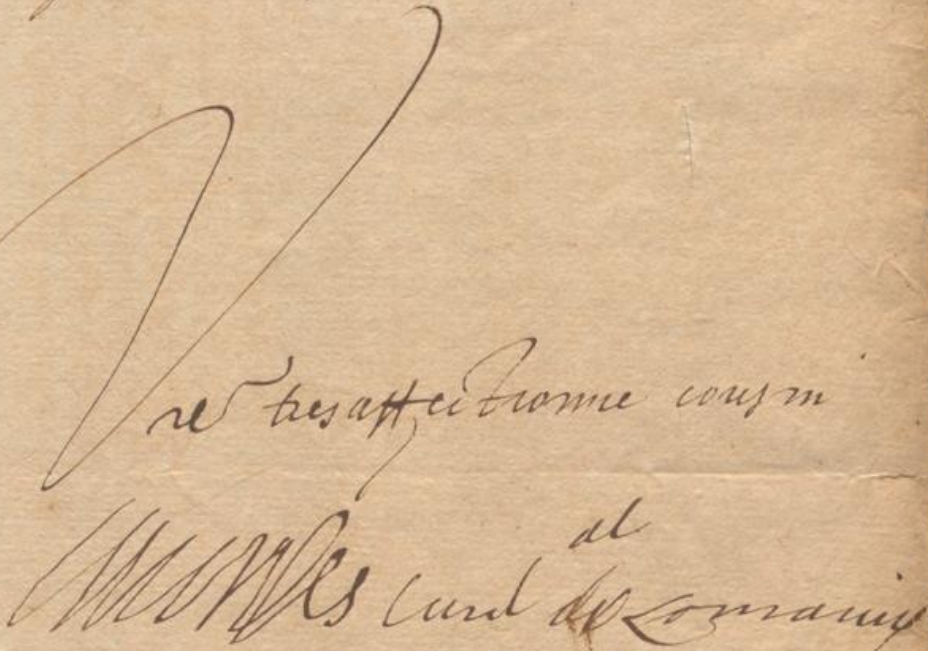 Vre tresaffectionne cousin
Charles Cardal de Lorraine